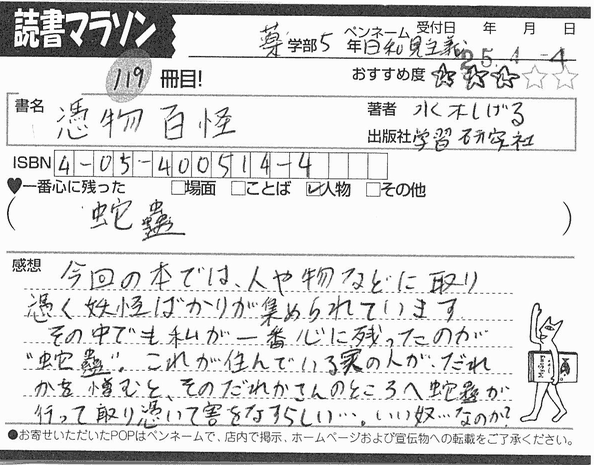 読書マラソン
薬学部5年 ペンネーム 日和見主義 受付日 年 月 日
25.4-4
119冊目!
おすすめ度 ★★★☆☆
書名 憑物百怪
著者 水木しげる
出版社 学習研究社
ISBN 4-05-400514-4
♥一番心に残った □場面 □ことば ☑人物 □その他
(蛇蠱)
感想 今回の本では、人や物などに取り
憑く妖怪ばかりが集められています。
その中でも私が一番心に残ったのが
"蛇蠱"。これが住んでいる家の人が、だれ
かを憎むと、そのだれかさんのところへ蛇蠱が
行って取り憑いて害をなすらしい…。いい奴…なのか?
●お寄せいただいたPOPはペンネームで、店内で掲示、ホームページおよび宣伝物への転載をご了承ください。